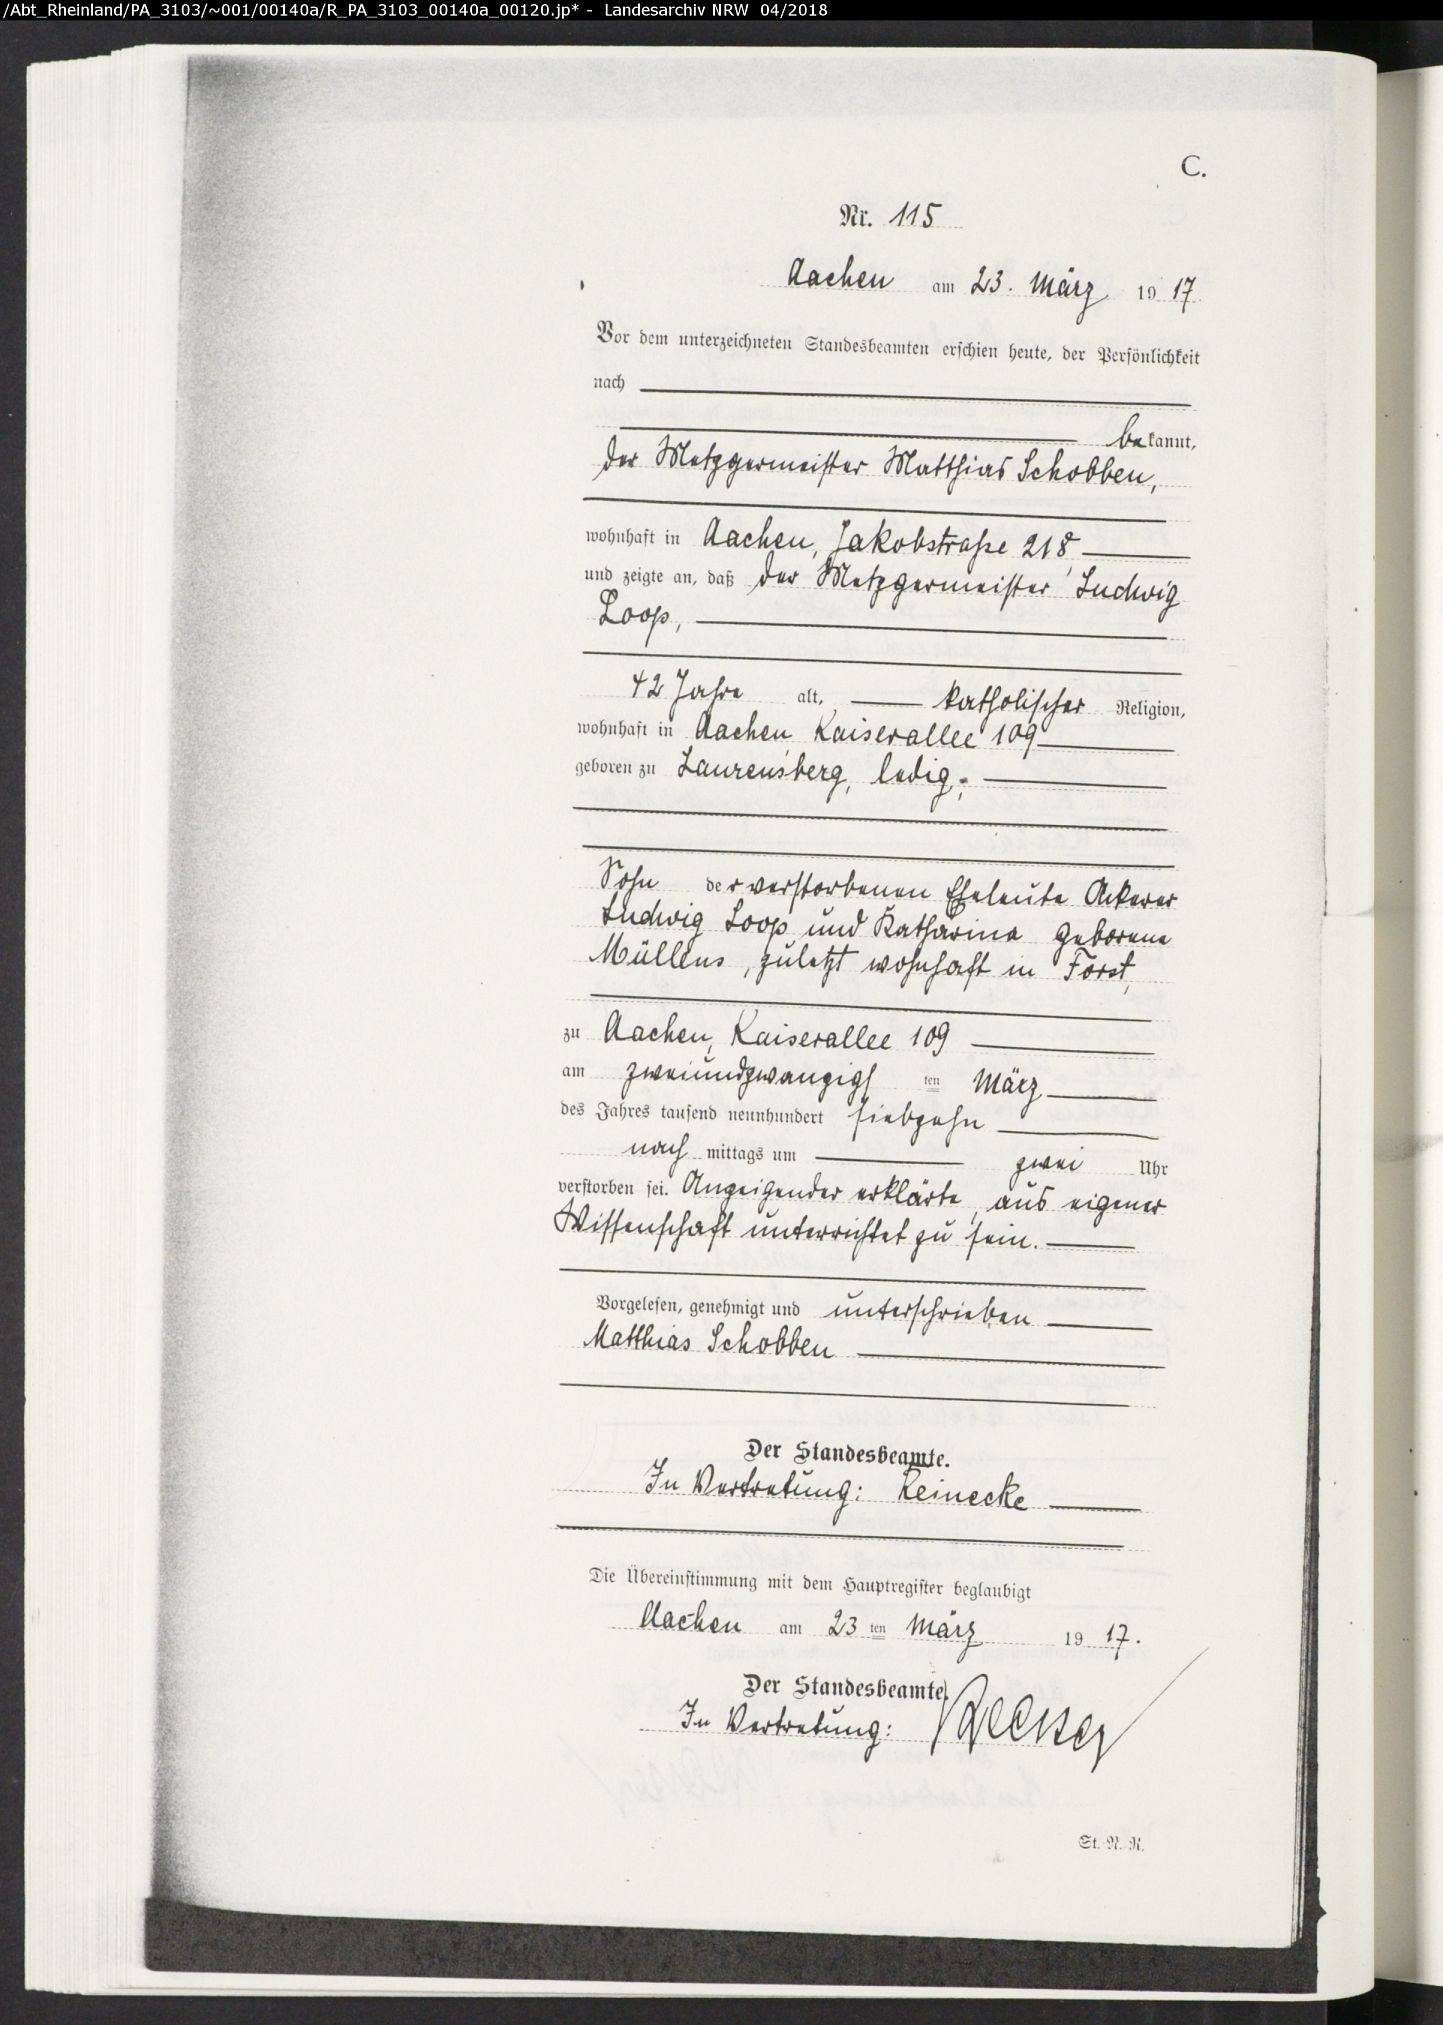 /Abt_Rheinland/PA_3103/~001/00140a/R_PA_3103_00140a_00120.jp* - Landesarchiv NRW 04/2018
C.
Nr. 115
Aachen am 23. März 1917
Vor dem unterzeichneten Standesbeamten erschien heute, der Persönlichkeit
nach
bekannt,
der Metzgermeister Matthias Schobben,
wohnhaft in Aachen, Jakobstraße 218,
und zeigte an, daß der Metzgermeister Ludwig
Loop,
42 Jahre alt, katholischer Religion,
wohnhaft in Aachen, Kaiserallee 109
geboren zu Laurensberg, ledig,
Sohn der verstorbenen Eheleute Ackerer
Ludwig Loop und Katharina geborene
Müllens, zuletzt wohnhaft in Forst,
zu Aachen, Kaiserallee 109
am zweiundzwanzigsten März
des Jahres tausend neunhundert siebzehn
nachmittags um zwei Uhr
verstorben sei. Anzeigender erklärte, aus eigener
Wissenschaft unterrichtet zu sein.
Vorgelesen, genehmigt und unterschrieben
Matthias Schobben
Der Standesbeamte.
In Vertretung: Reinecke
Die Übereinstimmung mit dem Hauptregister beglaubigt
Aachen am 23ten März 1917.
Der Standesbeamte.
In Vertretung:
St. A. R.